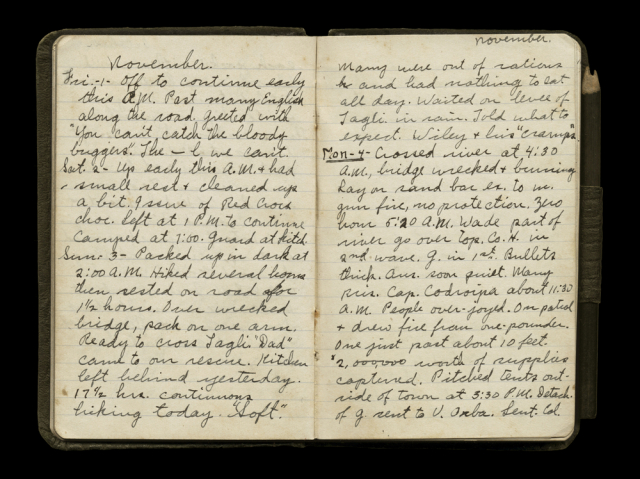 November.
Fri.-1- Off to continue early
this A.M. Past many English
along the road, greeted with
"You can't, catch the bloody
buggers". The - l we can't.
Sat. 2- Up early this A.M. & had
small rest & cleaned up
a bit. Issue of Red Cross
choc. left at 1 P.M. to continue
Camped at 7:00. Guard at Kitch
Sun. 3- Packed up in dark at
2:00 A.M. Hiked several hours
then rested on road for
1½ hours. Over wrecked
bridge, pack on one arm.
Ready to cross Tagli. "Dad"
came to our rescue. Kitchen
left behind yesterday.
17½ hrs. continuous
hiking today. "Soft".
November.
Many were out of rations
& and had nothing to eat
all day. Waited on levee of
Tagli. in rain. Told what to
expect. Wiley & his "cramps"
Mon-4- Crossed river at 4:30
A.M., bridge wrecked & burning
Lay on sand bar ex. to m.
gun fire, no protection. Zero
hour 5:20 A.M. Wade part of
river go over top. Co. H. in
2nd wave. G. in 1st. Bullets
thick. Aus. soon quiet. Many
pris. Cap. Codroipa about 11:30
A.M. People over-joyed. On patrol
& drew fire from one-pounder.
One just past about 10 feet.
$2,000,000 worth of supplies
captured. Pitched tents out-
side of town at 3:30 P.M. Detach.
of G sent to V. Orba. Sent. Ed.